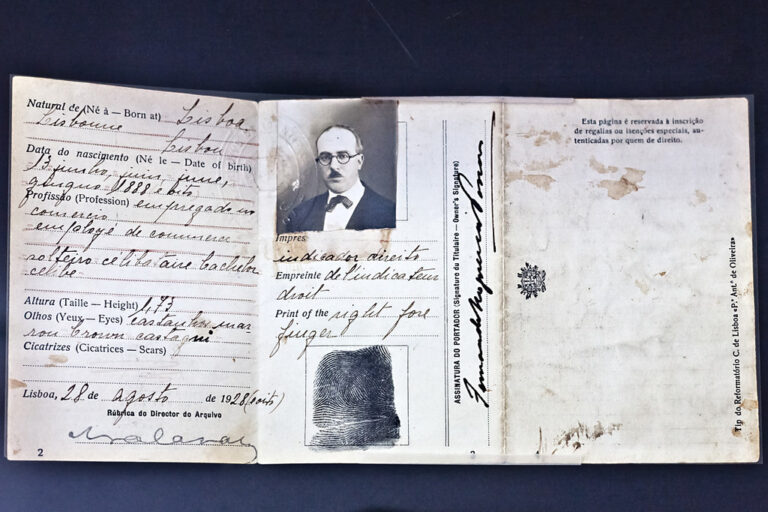 Natural de (Né à — Born at) Lisboa
Lisbonne
Lisbon
Data do nascimento (Né le — Date of birth)
13 junho, juin, june,
giugno 1888 e oito)
Profissão (Profession) empregado no
comercio
employé de commerce
solteiro celibataire bachelor
celibe
Altura (Taille — Height) 1,73
Olhos (Yeux — Eyes) castanhos mar
ron brown castagni
Cicatrizes (Cicatrices — Scars)
Lisboa, 28 de agosto de 1928 (oito)
Rúbrica do Director do Arquivo
2
Impres
indicador direito
Empreinte de l'indicateur
droit
Print of the right fore
finger
3
ASSINATURA DO PORTADOR (Signature du Titulaire — Owner's Signature)
Fernando Nogueira Pessoa
Esta página é reservada à inscrição
de regalias ou isenções especiais, au-
tenticadas por quem de direito.
4
Tip do Reformatório C. de Lisboa «P.e Ant.o de Oliveira»